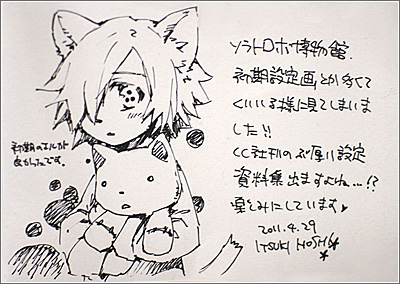 ソラトロボ博物館.
初期設定画とか多くて
くいいる様に見てしまいま
した!!
CC社刊のぶ厚い設定
資料集出ますよね…!?
楽しみにしています♥
2011.4.29
ITSUKI HOSHI
初期のエルが
良かったです。